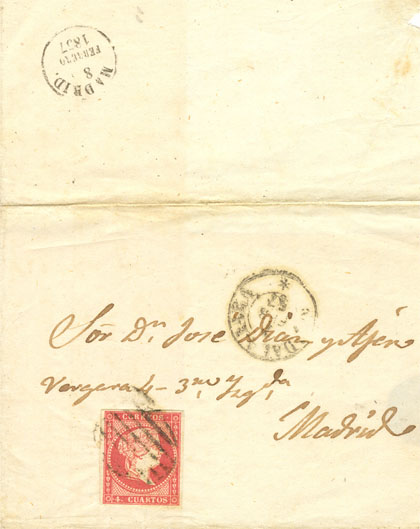 MADRID.
8
FEBRERO
1857
Sōr Dn. Jose Diaz y Ajéro
Vergara 4 - 3ro. Izqda
Madrid
CORREOS
4. CUARTOS